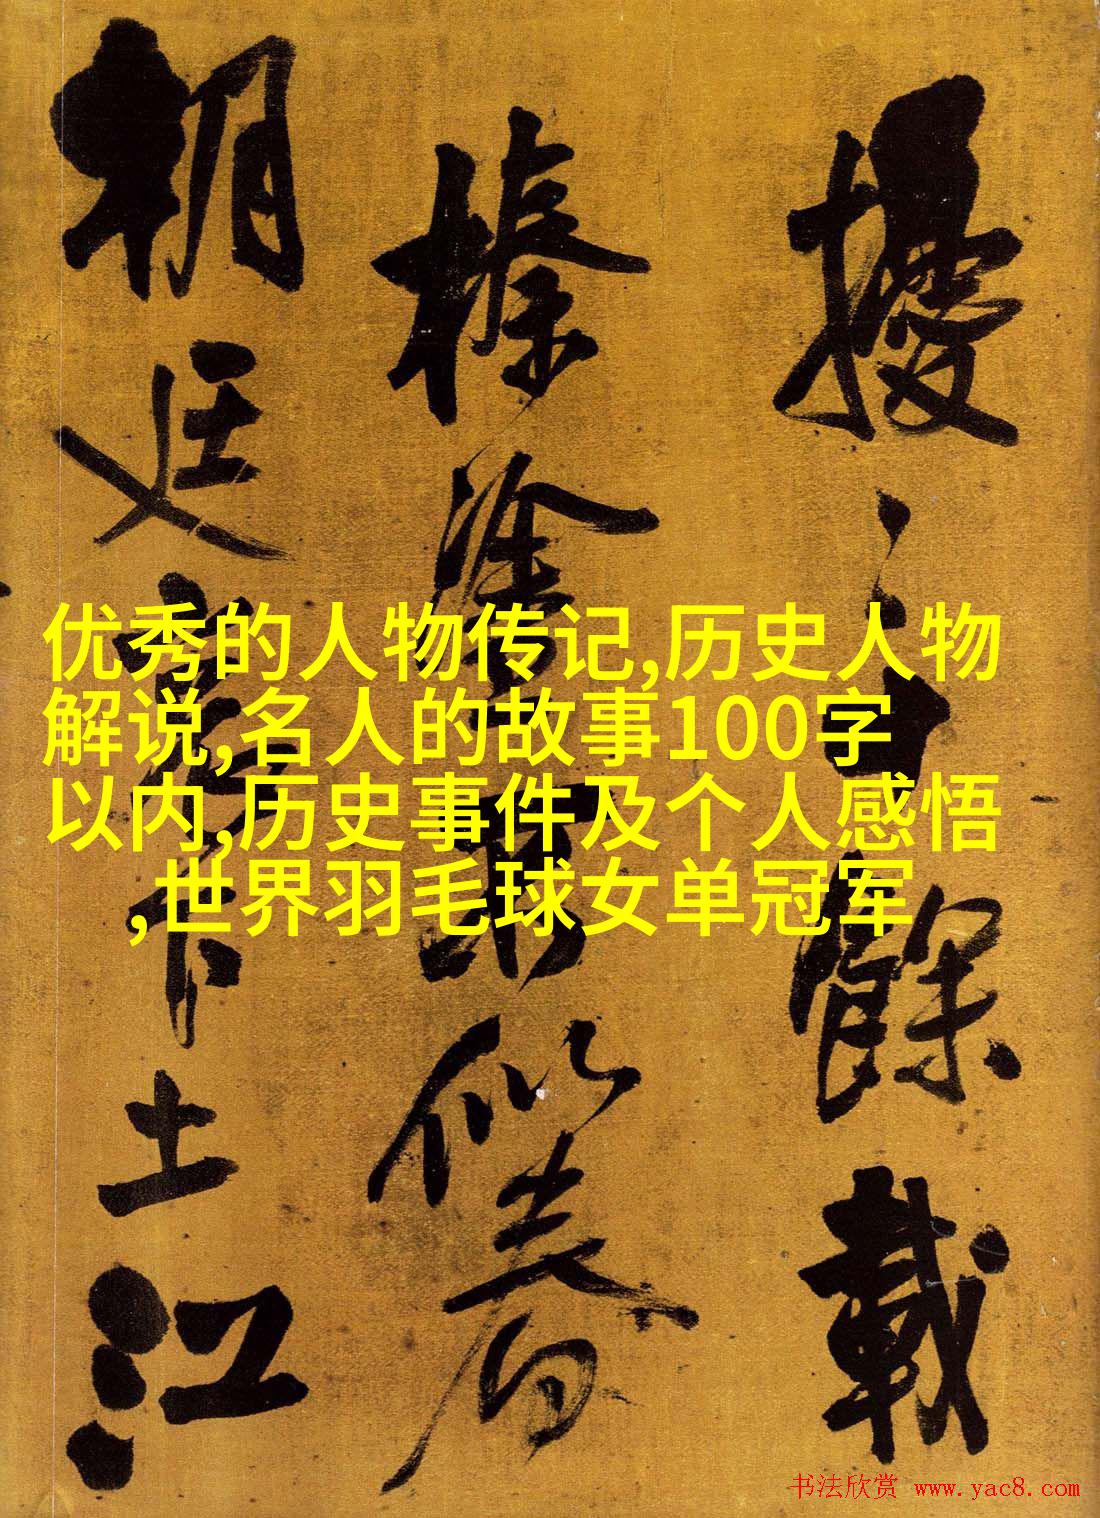 优秀的人物传记,历史人物
解说,名人的故事100字
以内,历史事件及个人感悟
,世界羽毛球女单冠军
擾餘載
榛塗
朝廷土江
书法欣赏 www.yac8.com